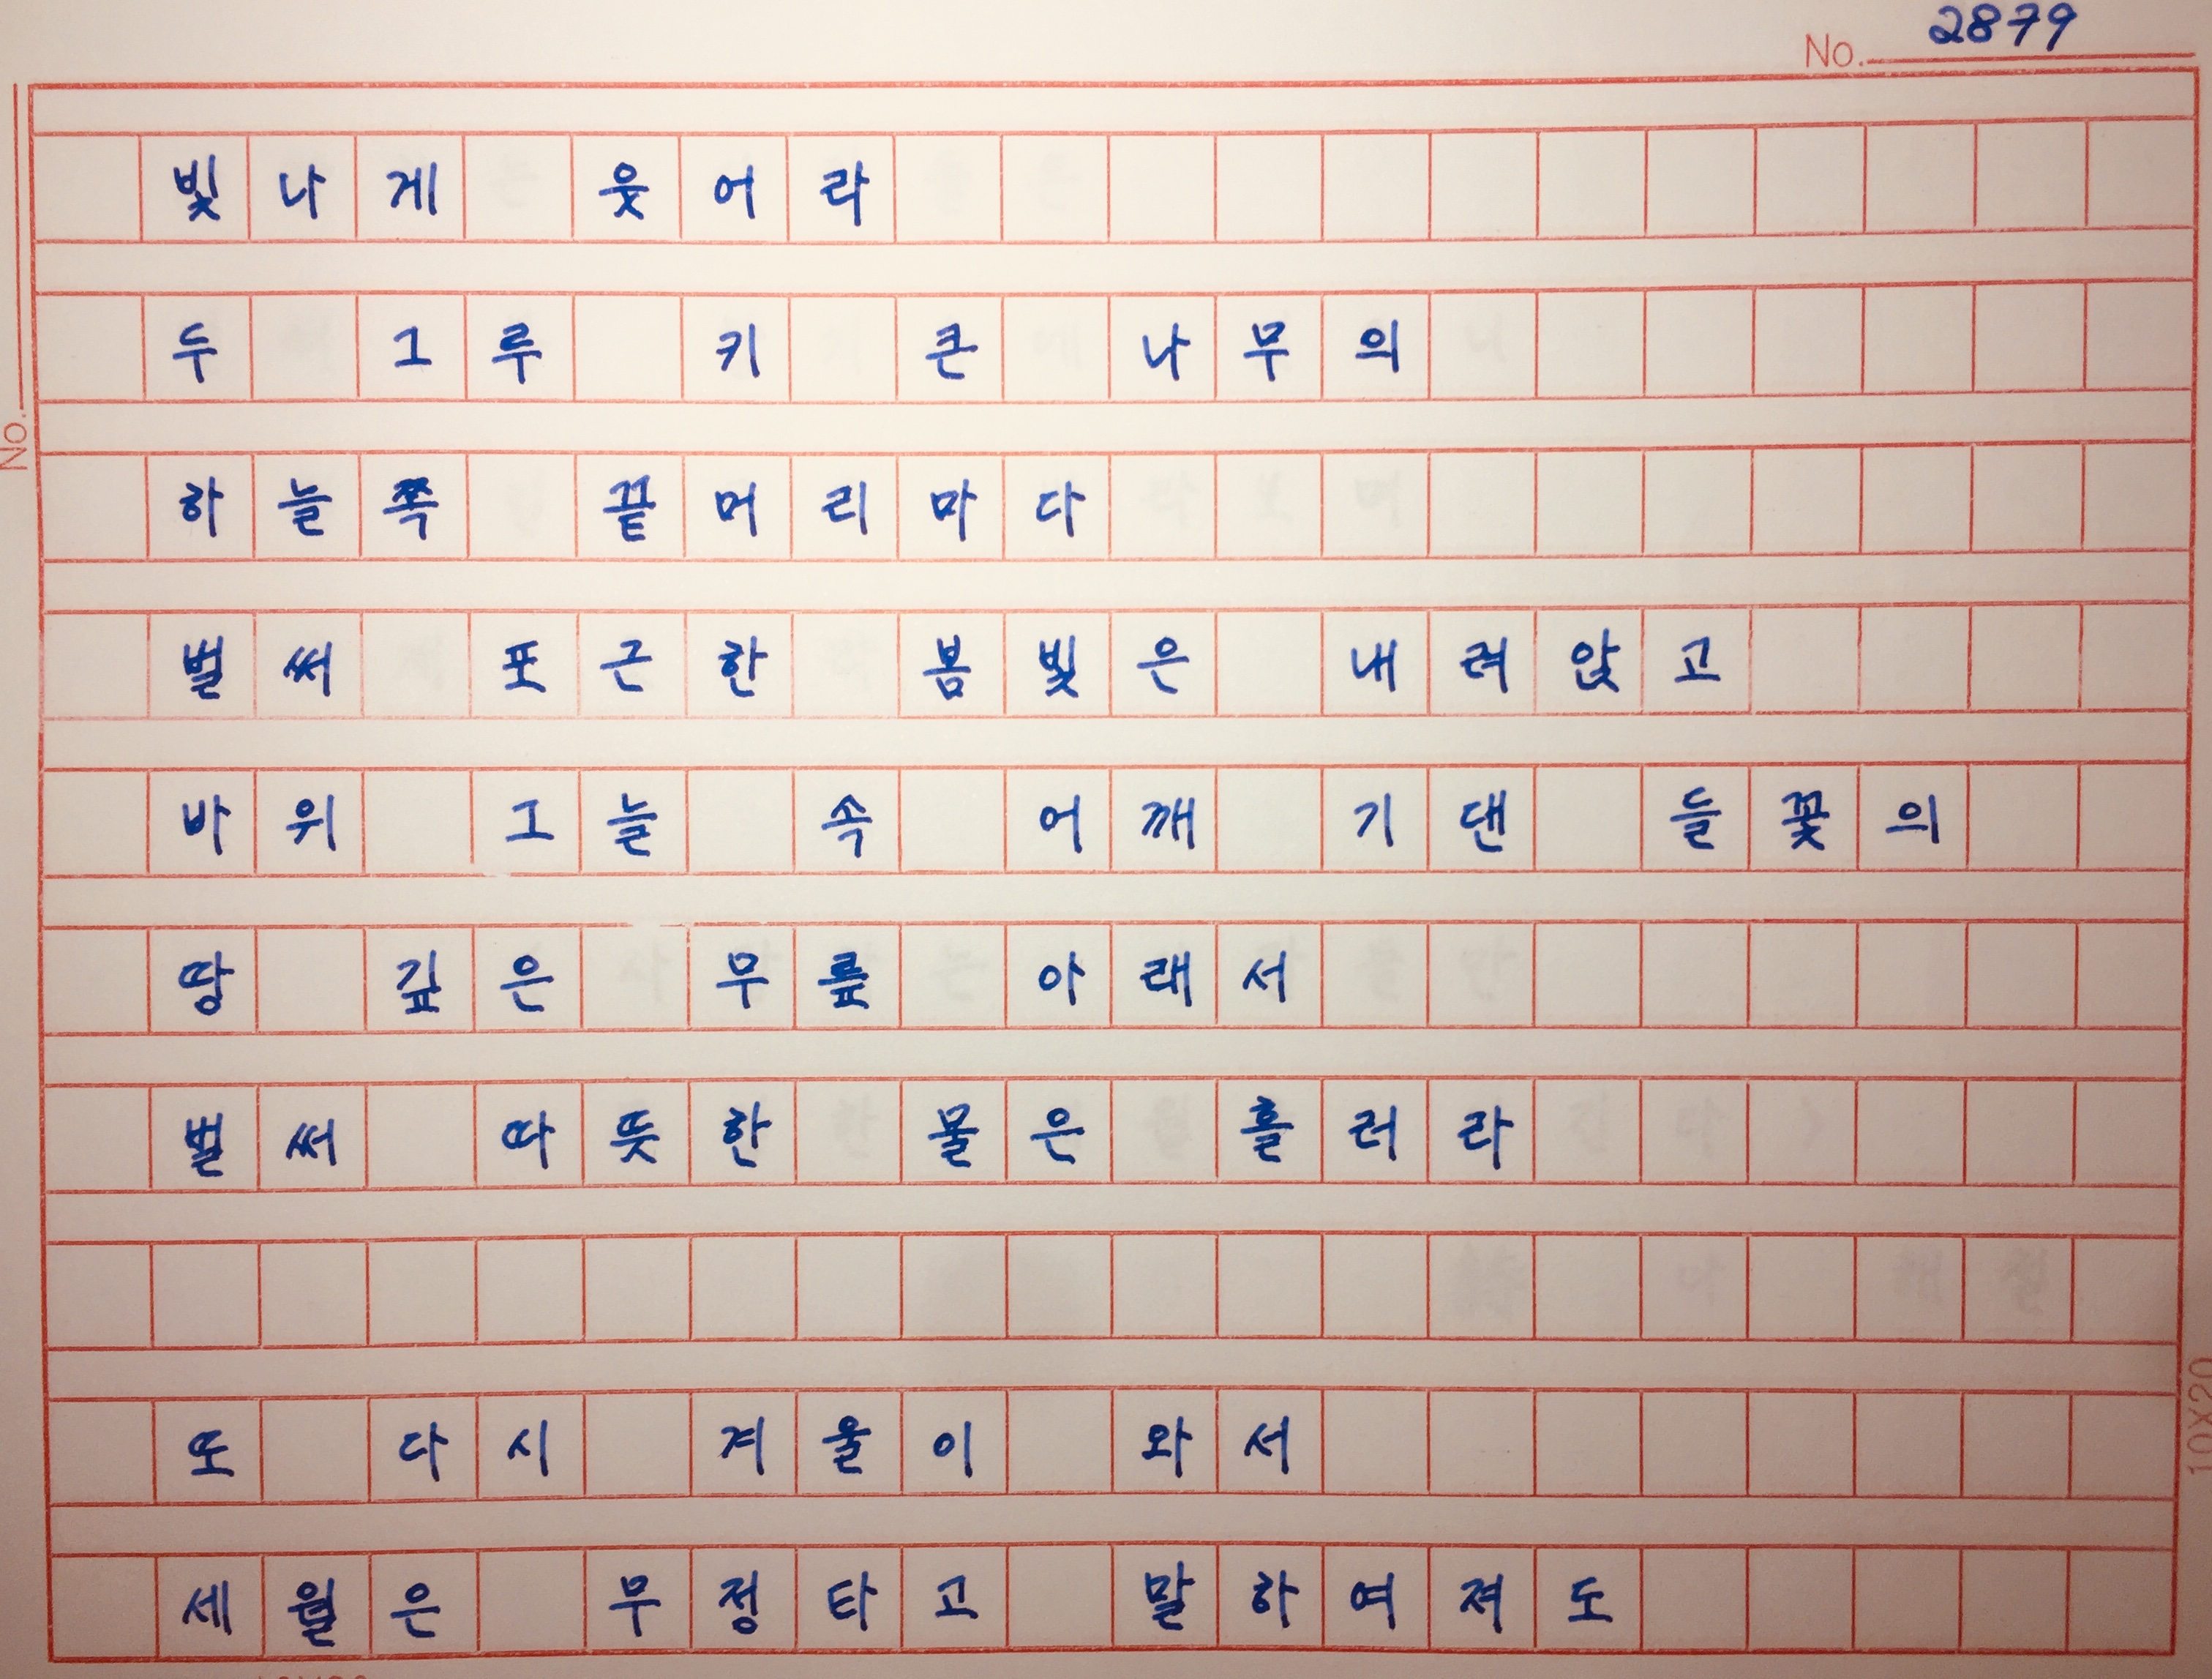 No. 2879
빛나게 웃어라
두 그루 키 큰 나무의
하늘쪽 끝머리마다
벌써 포근한 봄빛은 내려앉고
바위 그늘 속 어깨 기댄 들꽃의
땅 깊은 무릎 아래서
벌써 따뜻한 물은 흘러라
또 다시 겨울이 와서
세월은 무정타고 말하여져도
No.
10X20